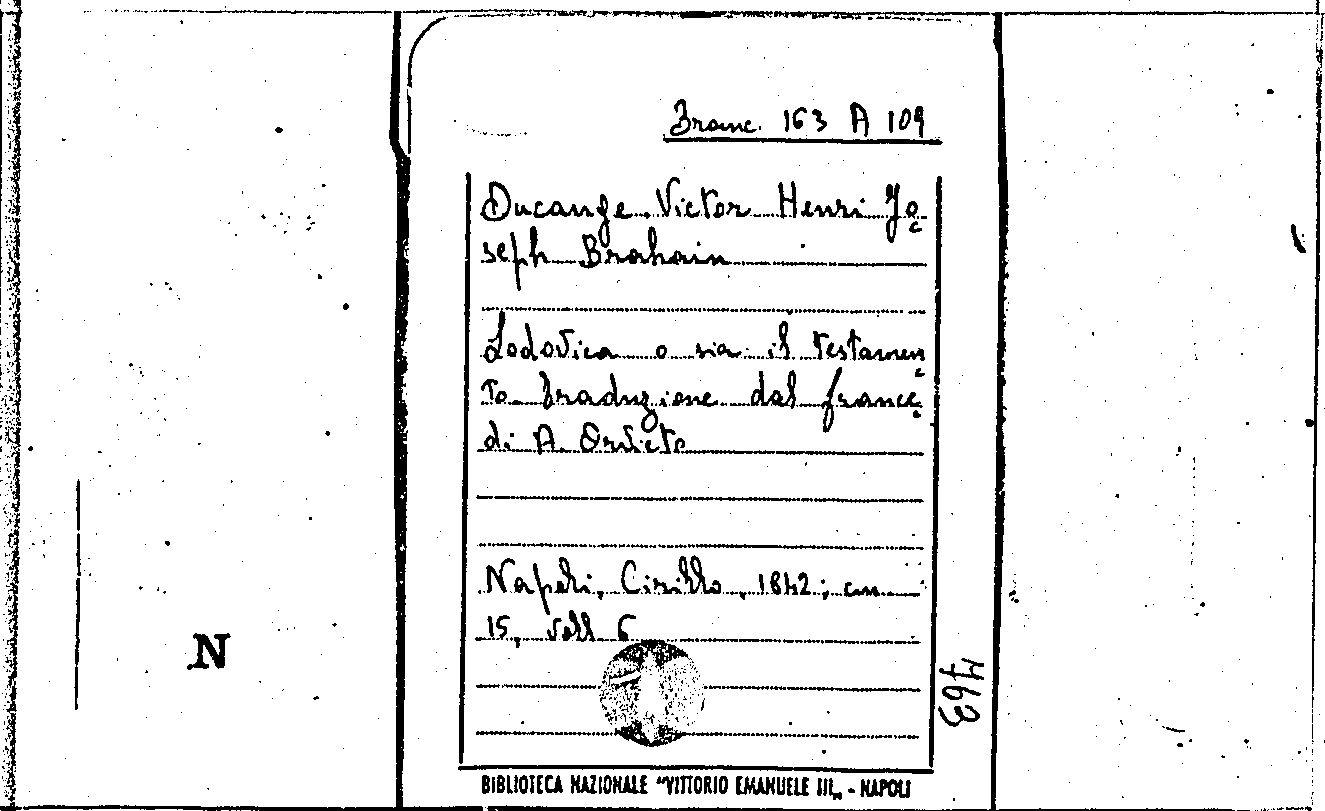 Branc. 163 A 109
Ducange Victor Henri Jo
seph Brahain
Lodovica o sia il testamen
to traduzione dal france
di A. Orvieto
Napoli, Cirillo, 1842; cm
15, voll 6
463
N
BIBLIOTECA NAZIONALE "VITTORIO EMANUELE III„ - NAPOLI